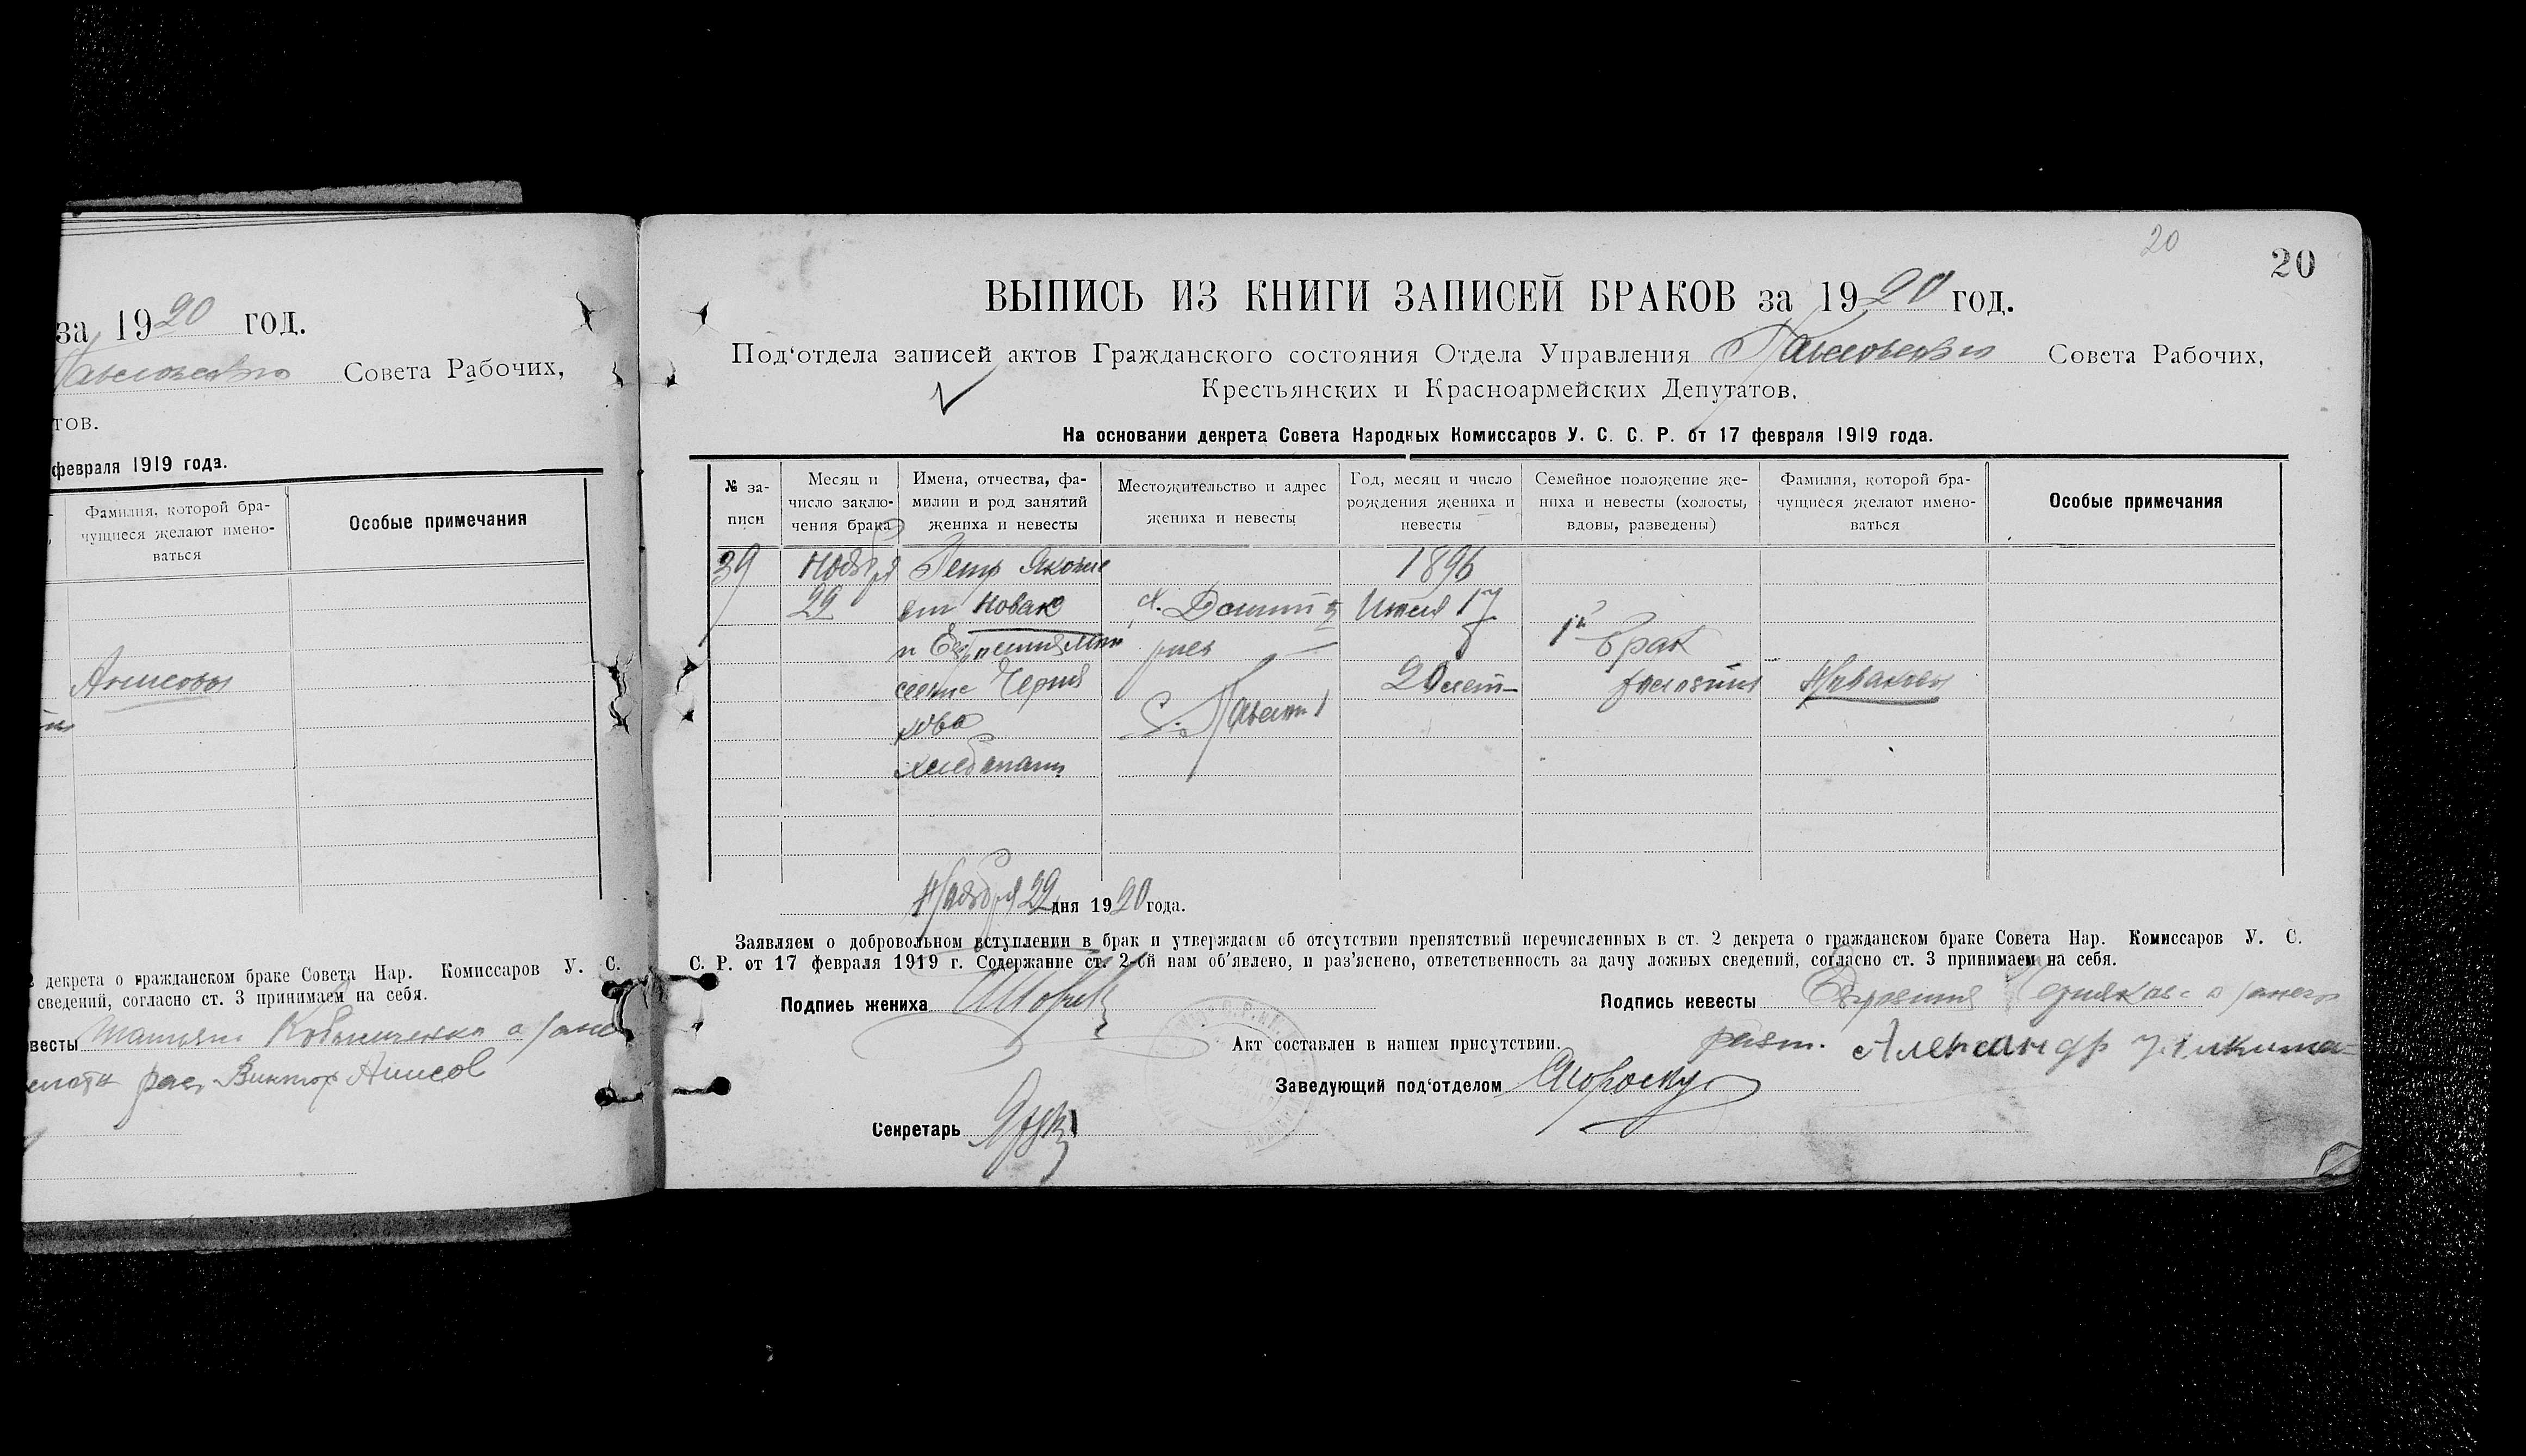 за 1920 год.
Совета Рабочих,
тов.
февраля 1919 года.
Фамилия, которой бра-
чущиеся желают имено-
ваться
Особые примечания
Анисовы
декрета о гражданском браке Совета Нар. Комиссаров У. С.
сведений, согласно ст. 3 принимаем на себя.
весты
Виктор Анисов
20
20
ВЫПИСЬ ИЗ КНИГИ ЗАПИСЕЙ БРАКОВ за 1920 год.
Под'отдела записей актов Гражданского состояния Отдела Управления Совета Рабочих,
Крестьянских и Красноармейских Депутатов.
На основании декрета Совета Народных Комиссаров У. С. С. Р. от 17 февраля 1919 года.
№ за-
писи
Месяц и
число заклю-
чения брака
Имена, отчества, фа-
милии и род занятий
жениха и невесты
Местожительство и адрес
жениха и невесты
Год, месяц и число
рождения жениха и
невесты
Семейное положение же-
ниха и невесты (холосты,
вдовы, разведены)
Фамилия, которой бра-
чущиеся желают имено-
ваться
Особые примечания
39
Ноября
22
Петр Яковле
вич Новак
и
Черня
кова
хлебопаш
1896
Июля 17
20 лет
1й
брак
холостые
Ноября 22 дня 1920 года.
Заявляем о добровольном вступлении в брак и утверждаем об отсутствии препятствий перечисленных в ст. 2 декрета о гражданском браке Совета Нар. Комиссаров У. С.
С. Р. от 17 февраля 1919 г. Содержание ст. 2-ой нам об'явлено, и раз'яснено, ответственность за дачу ложных сведений, согласно ст. 3 принимаем на себя.
Подпись жениха
Подпись невесты
Акт составлен в нашем присутствии.
Александр
Заведующий под'отделом
Секретарь